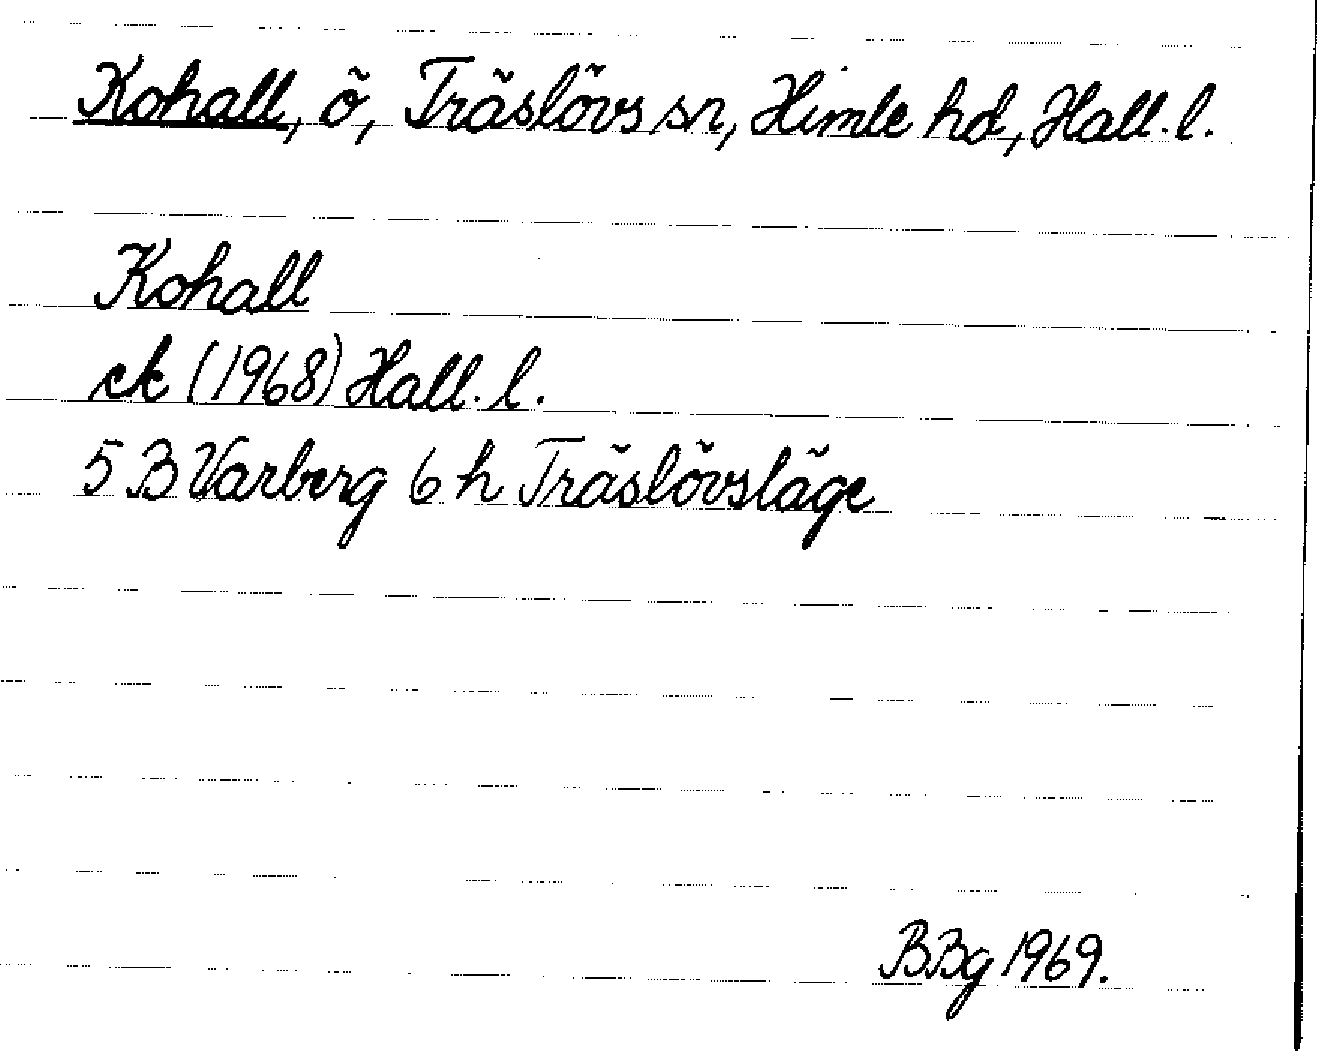 Kohall, ö, Träslövs sn, Himle hd, Hall. l.
Kohall
ek (1968) Hall. l.
5 B Varberg 6 h Träslövsläge
BBg 1969.